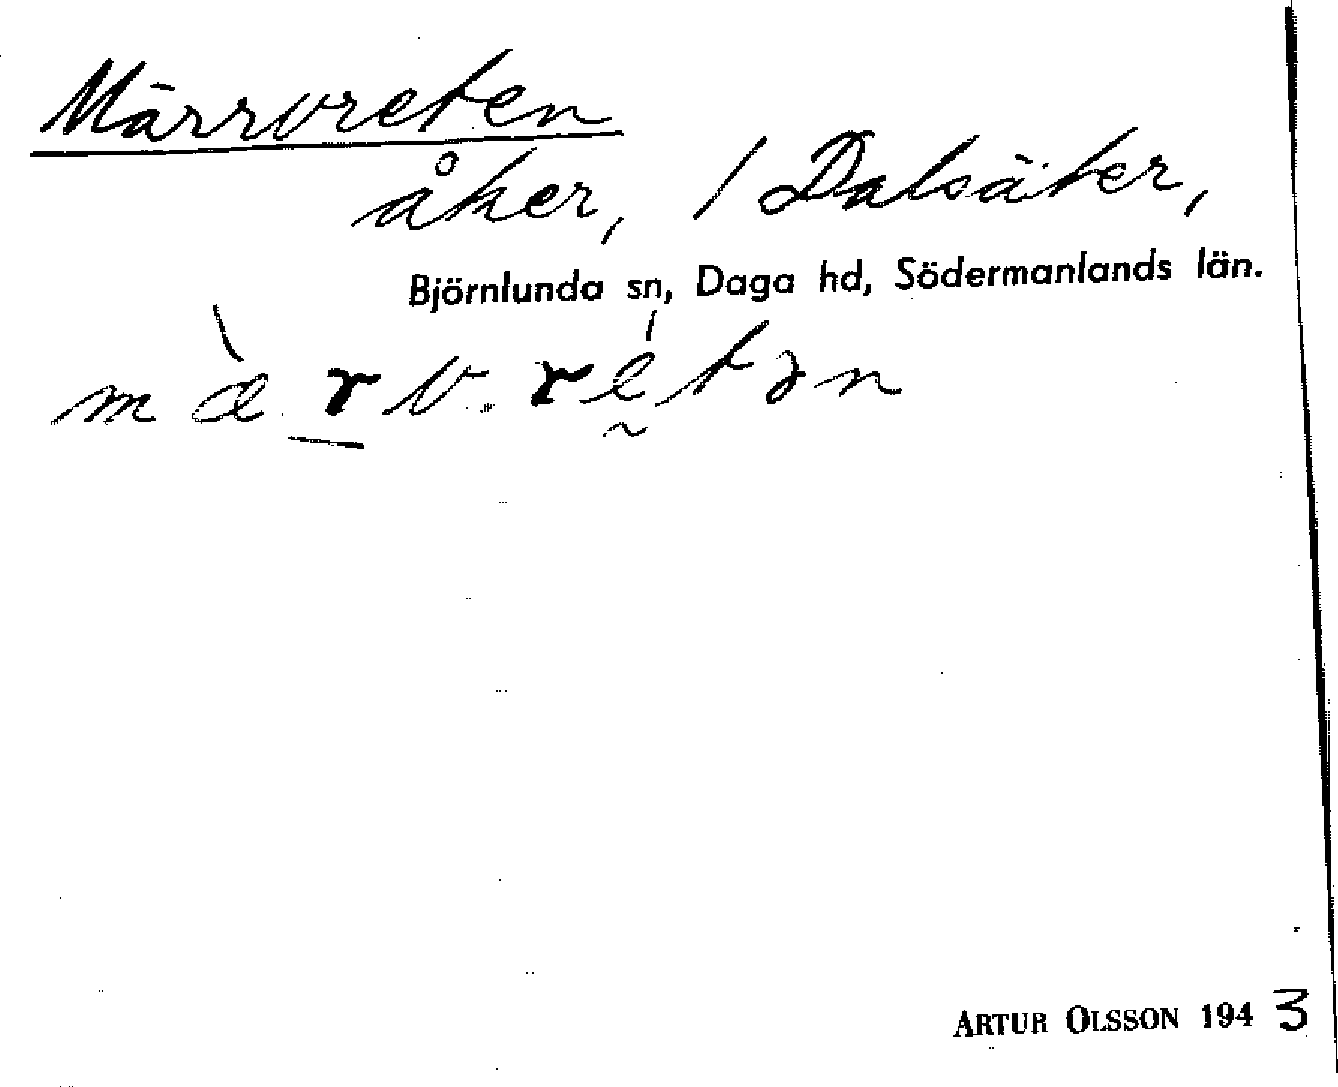 Märrvreten
åker, / Dalsäter,
Björnlunda sn, Daga hd, Södermanlands län.
mæ̀r̲v.rḛ́tən
ARTUR OLSSON 1943